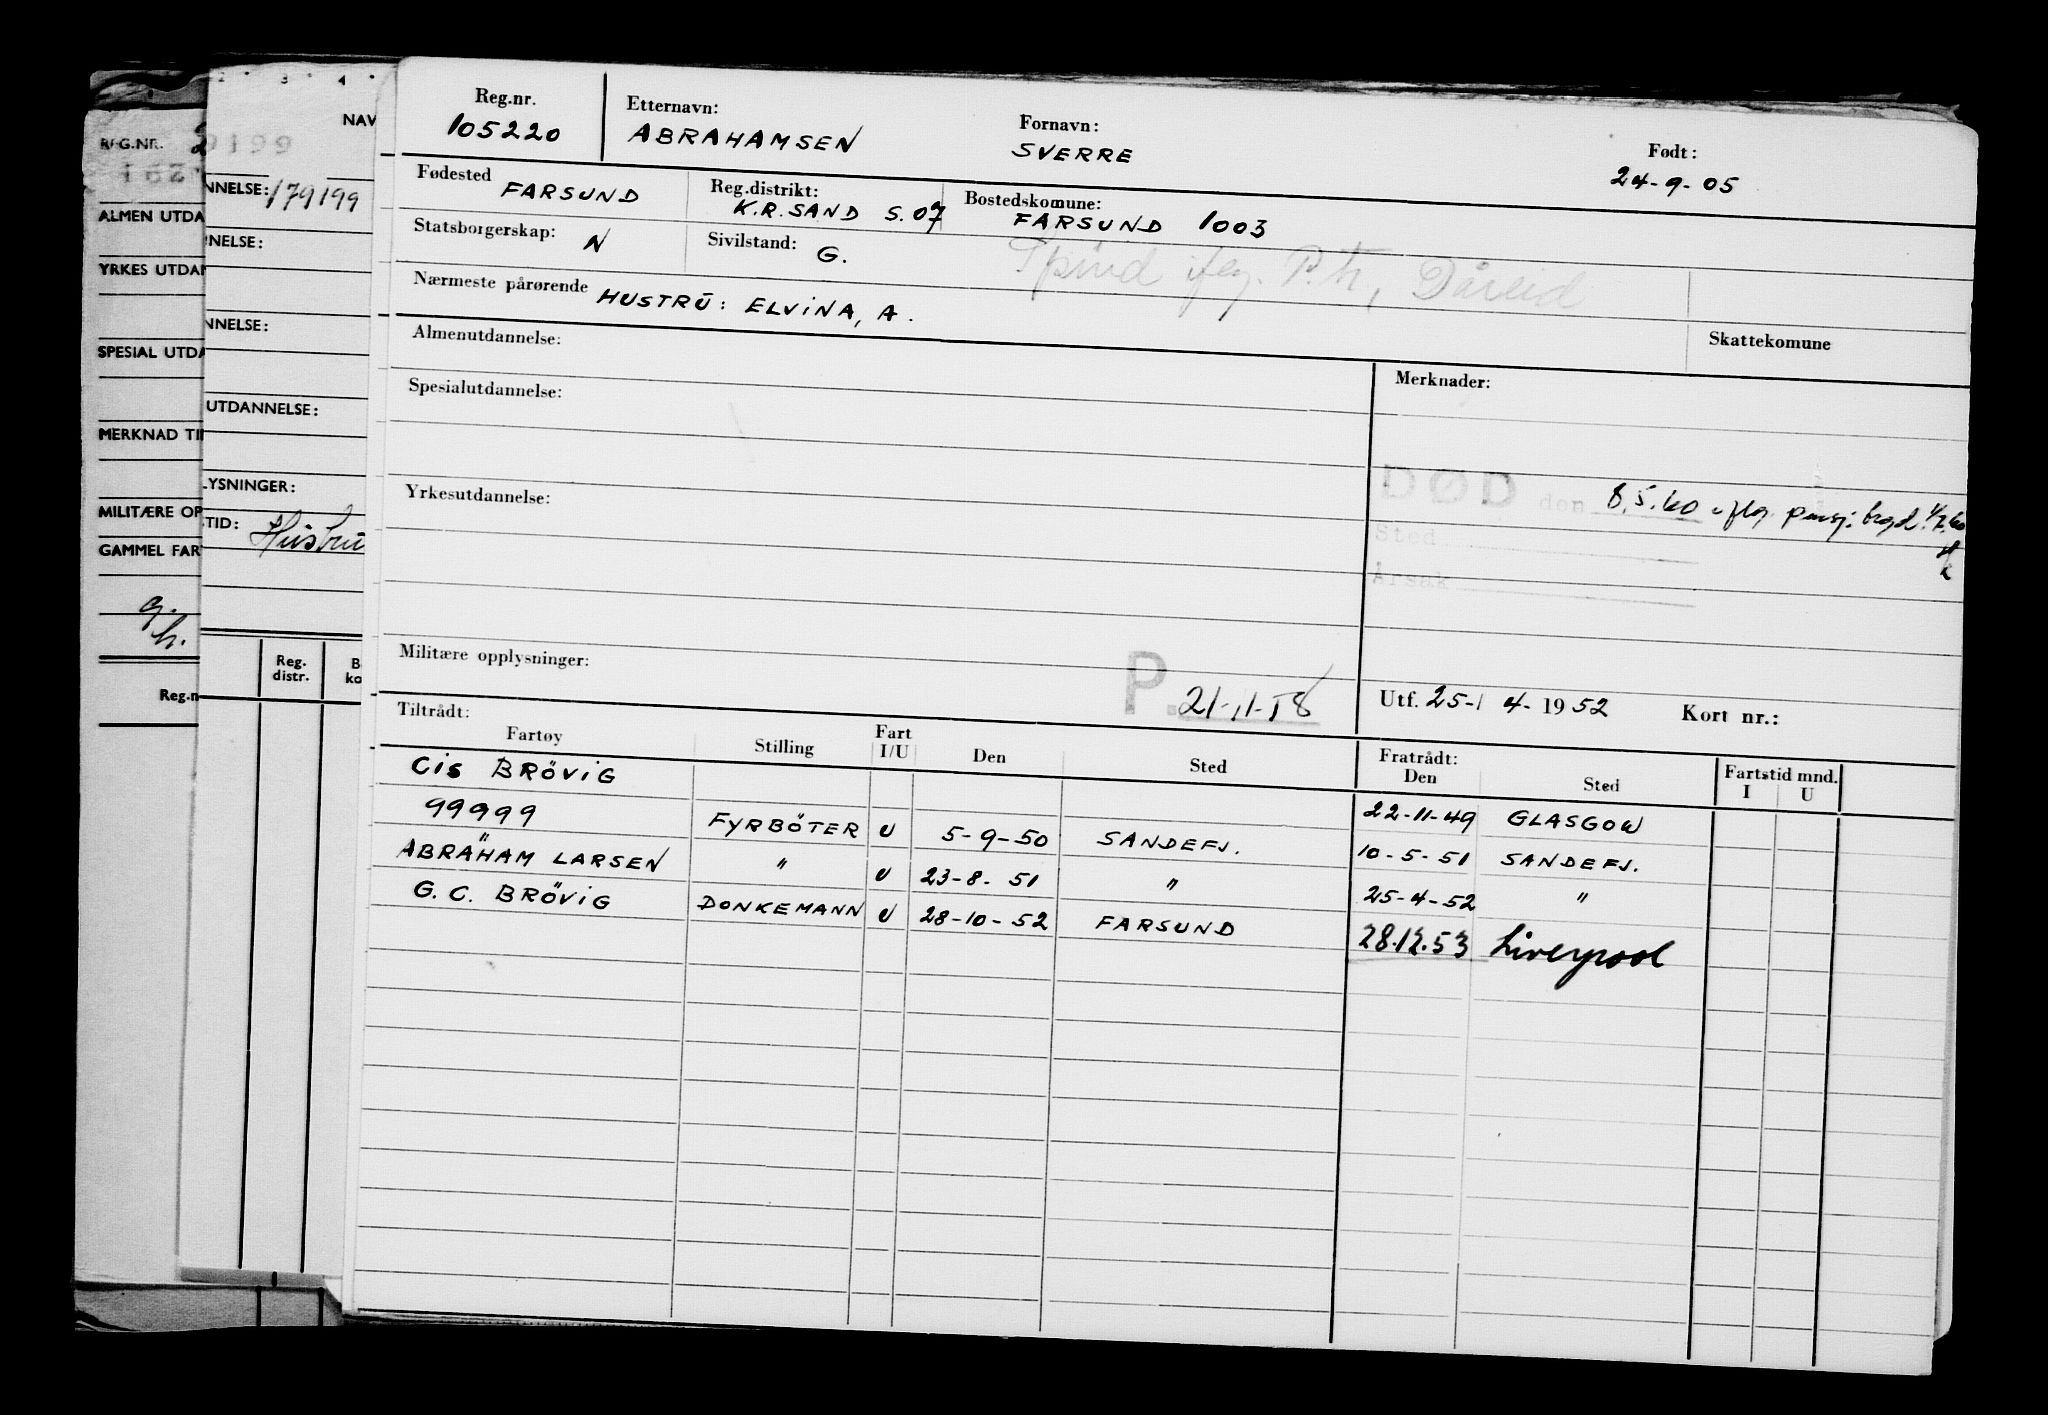 Reg.nr. Etternavn: Fornavn: Født:
105220 ABRAHAMSEN SVERRE 24-9-05
Fødested FARSUND Reg.distrikt: K.R.SAND S.07 Bostedskomune: FARSUND 1003
Statsborgerskap: N Sivilstand: G. Spind iflg. P.tr,
Nærmeste pårørende HUSTRU: ELVINA, A.
Skattekomune
Almenutdannelse: Merknader:
Spesialutdannelse:
DØD den 8.5.60 iflg. pensj.
Sted
Årsak
Yrkesutdannelse:
Militære opplysninger: P. 21-11-58
Utf. 25- 4- 1952 Kort nr.:
Tiltrådt: Fratrådt: Fartstid mnd.
Fartøy Stilling Fart I/U Den Sted Den Sted I U
CIS BRÖVIG 22-11-49 GLASGOW
99999 FYRBÖTER U 5-9-50 SANDEFJ. 10-5-51 SANDEFJ.
ABRAHAM LARSEN " U 23-8-51 " 25-4-52 "
G. C. BRÖVIG DONKEMANN U 28-10-52 FARSUND 28.12.53 Liverpool
2 3 4
NAV
9199
NNELSE: 179199
RNELSE:
NNELSE:
UTDANNELSE:
LYSNINGER:
STID: Hustru
Reg. distr. B ko
REG.NR. 2
ALMEN UTDA
YRKES UTDAN
SPESIAL UTDA
MERKNAD TIL
MILITÆRE OP
GAMMEL FAR
Reg.n